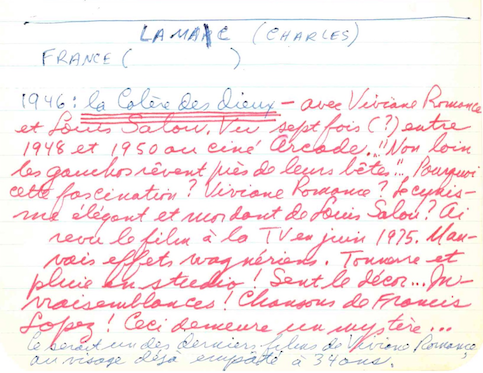 LAMAIC (CHARLES)
FRANCE (               )
1946 : la Colère des dieux - avec Viviane Romance
et Louis Salou. Vu sept fois (?) entre
1948 et 1950 au ciné Arcade. "Non loin
les gauchos rêvent près de leurs bêtes"... Pourquoi
cette fascination ? Viviane Romance ? Le cynis-
me élégant et mordant de Louis Salou ? Ai
revu le film à la TV en juin 1975. Mau-
vais effets wagnériens. Tonnerre et
pluie en studio ! Sent le décor... In-
vraisemblances ! Chansons de Francis
Lopez ! Ceci demeure un mystère...
Ce serait un des derniers films de Viviane Romance,
au visage déjà empâté à 34 ans.